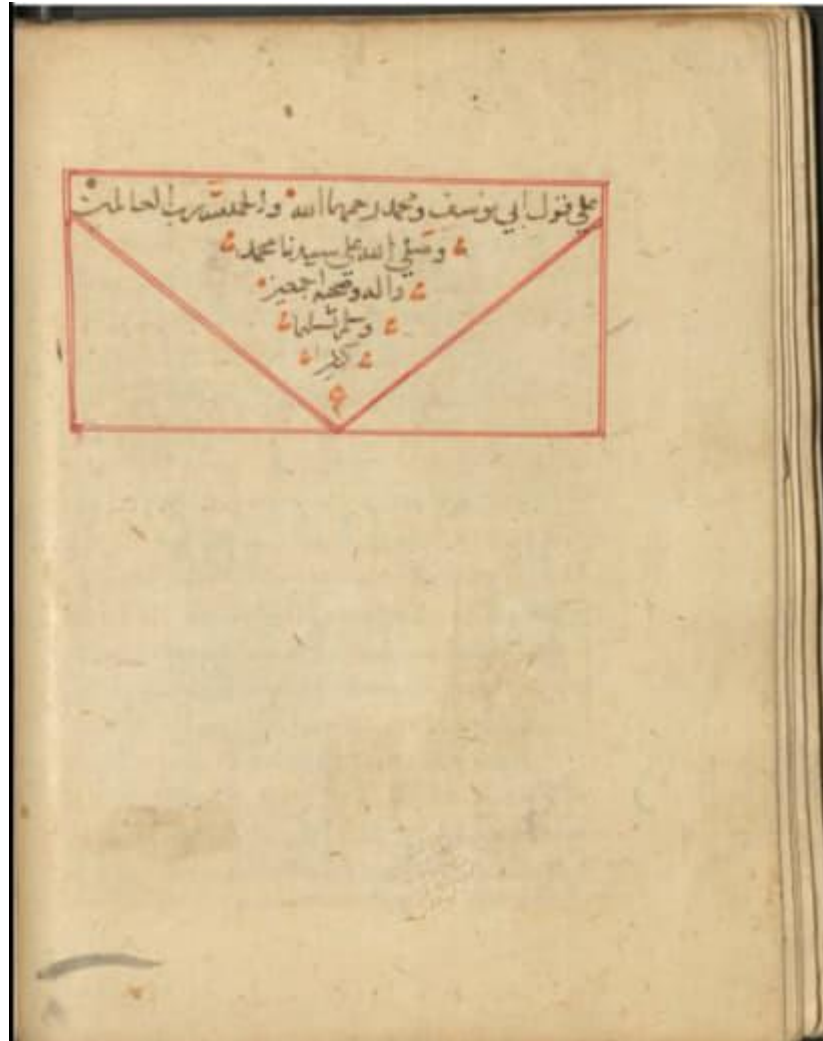 علي قول ابي يوسف ومحمد رحمهما الله والحمد لله رب العالمين
وصلي الله علي سيدنا محمد
واله وصحبه اجمعين
وسلم تسليما
كثيرا
م